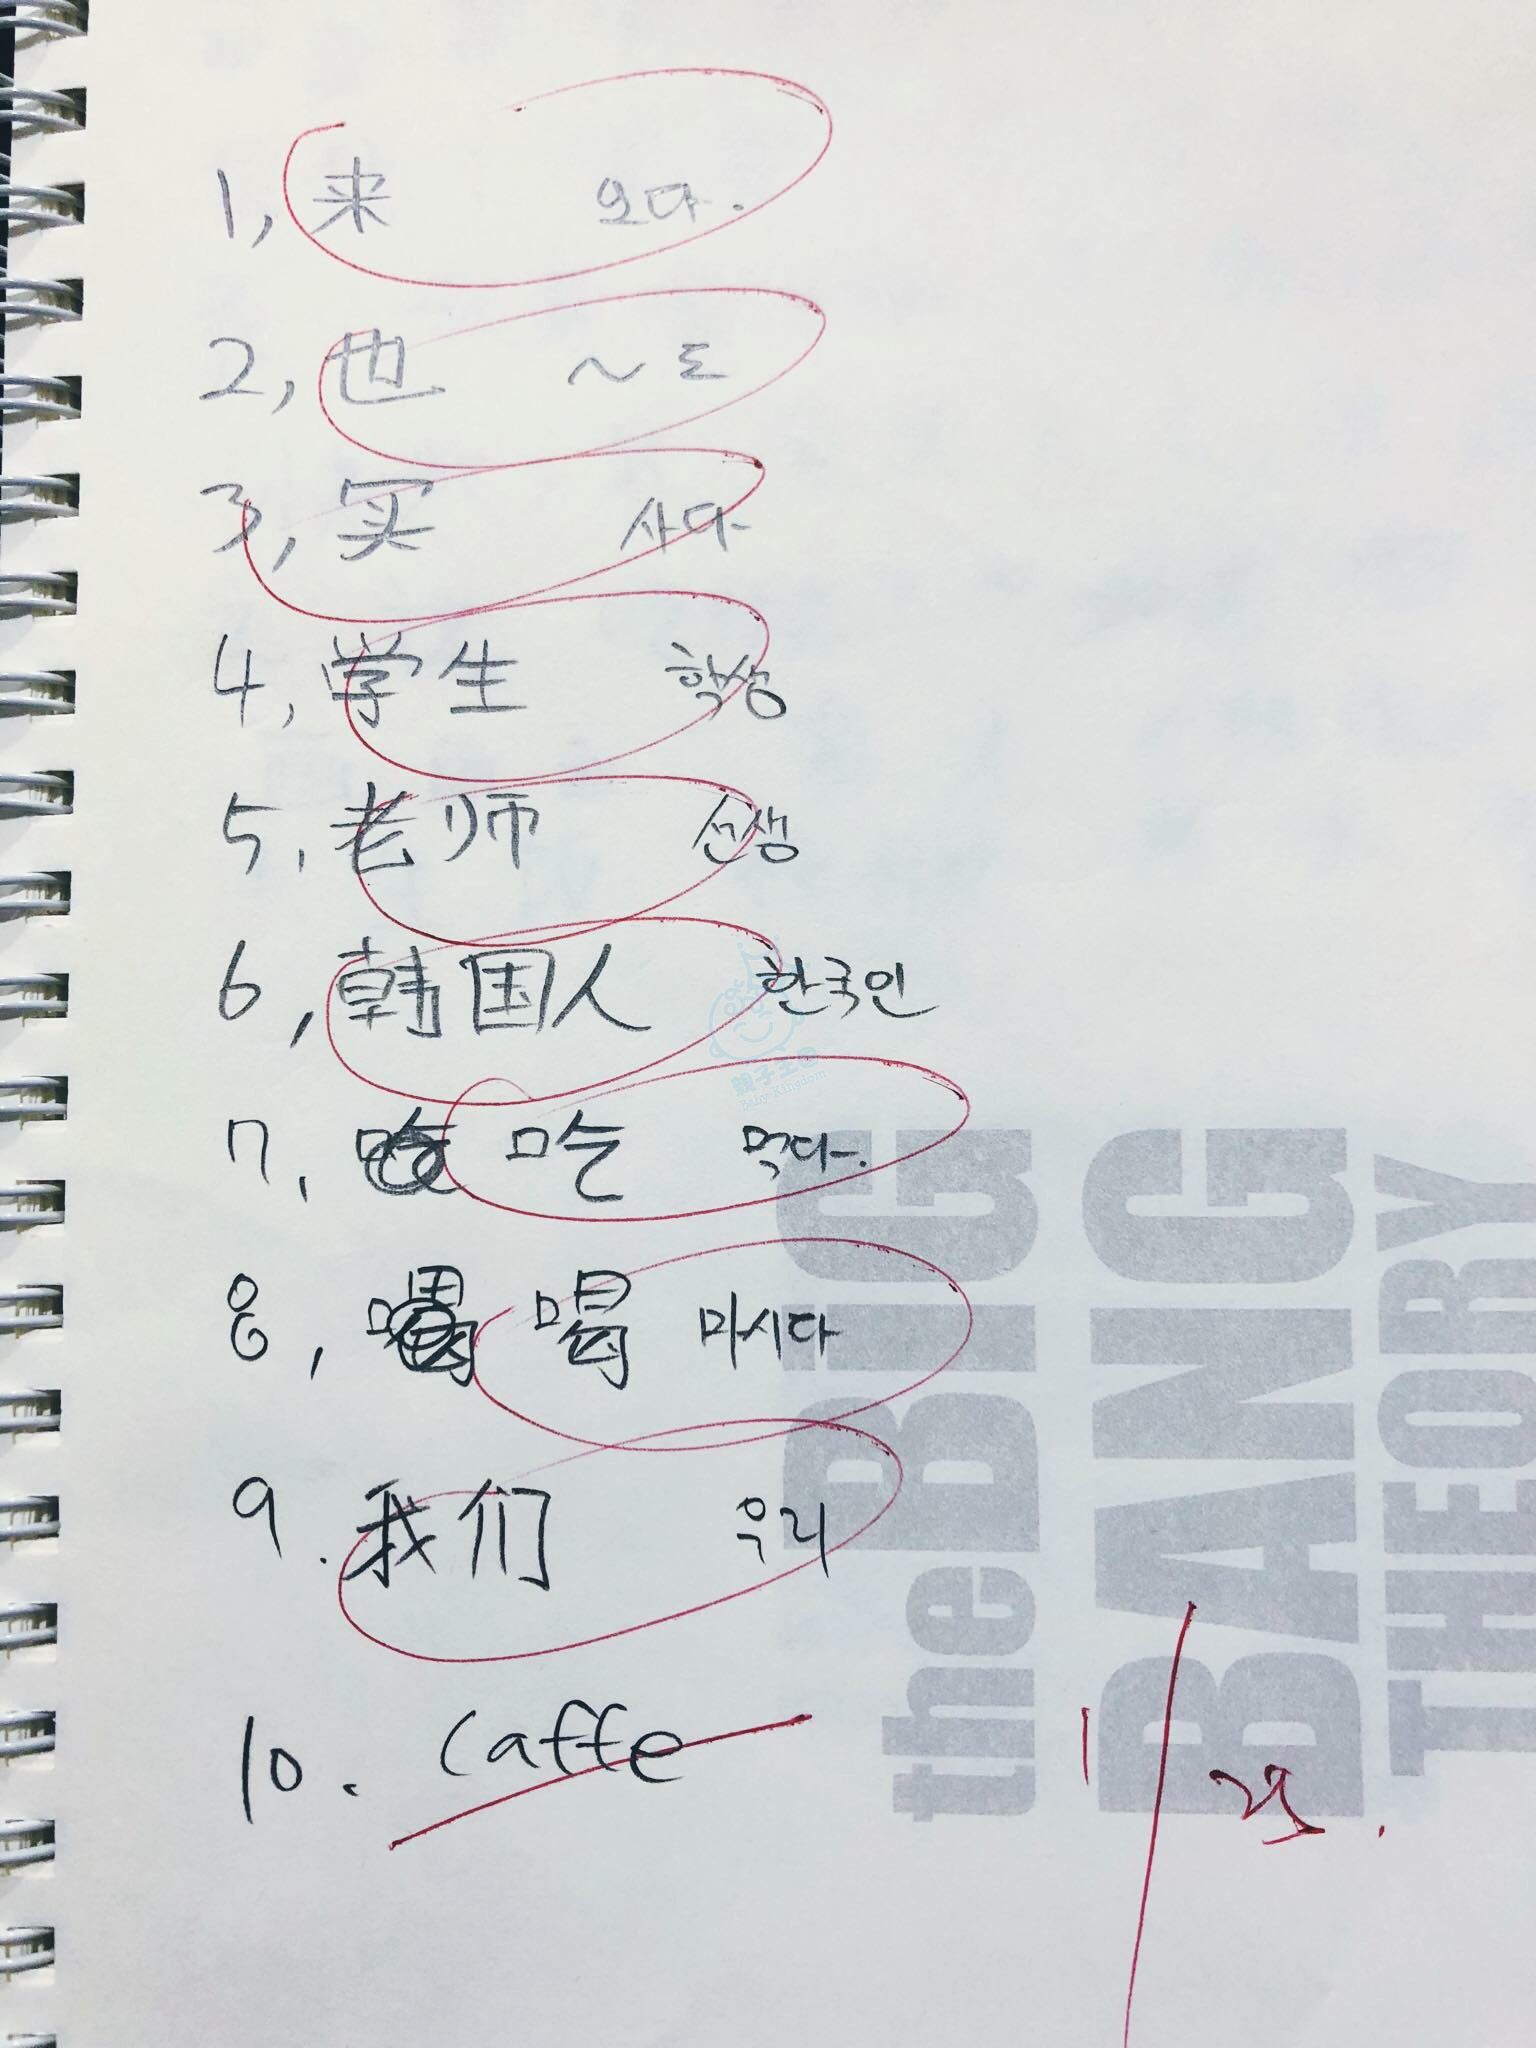 1, 来 오다.
2, 也 ~도
3, 买 사다
4, 学生 학생
5, 老师 선생
6, 韩国人 한국인
親子王國
Baby-Kingdom
7, 吃 먹다.
8, 喝 마시다
9. 我们 우리
10. Caffe
the BIG
BANG
THEORY